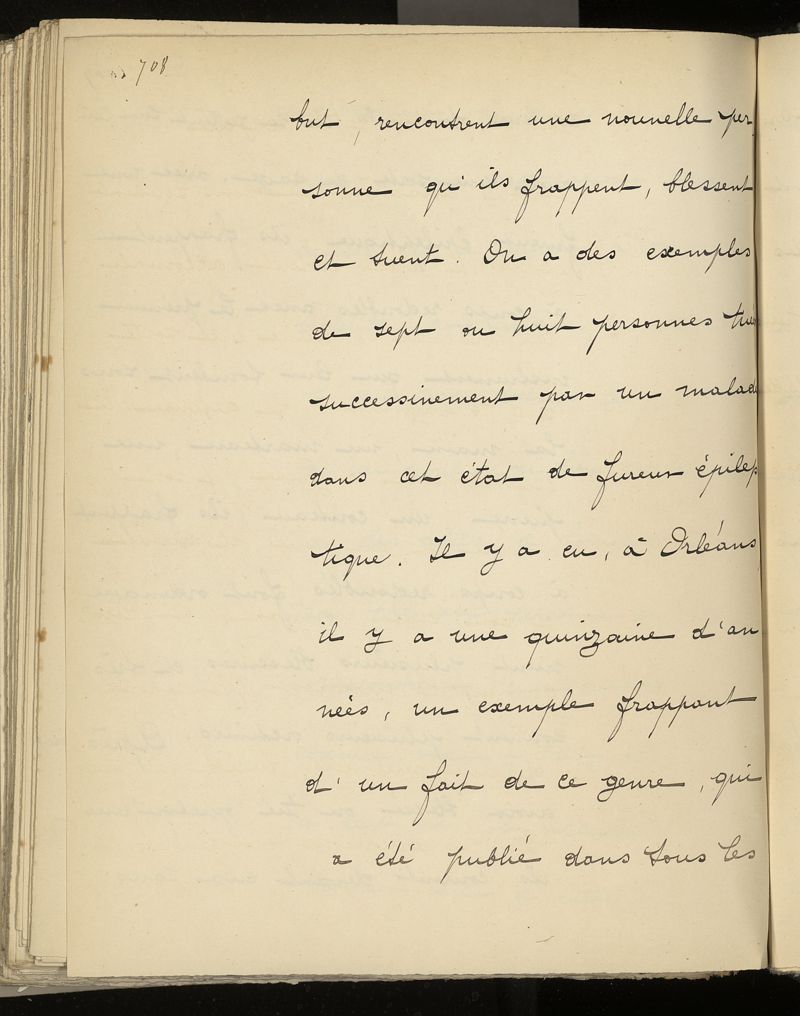 708
but, rencontrent une nouvelle per
sonne qu'ils frappent, blessent
et tuent. On a des exemples
de sept ou huit personnes tué
successivement par un malade
dans cet état de fureur épilep
tique. Il y a eu, à Orléans,
il y a une quinzaine d'an
neés, un exemple frappant
d'un fait de ce genre, qui
a été publié dans tous les